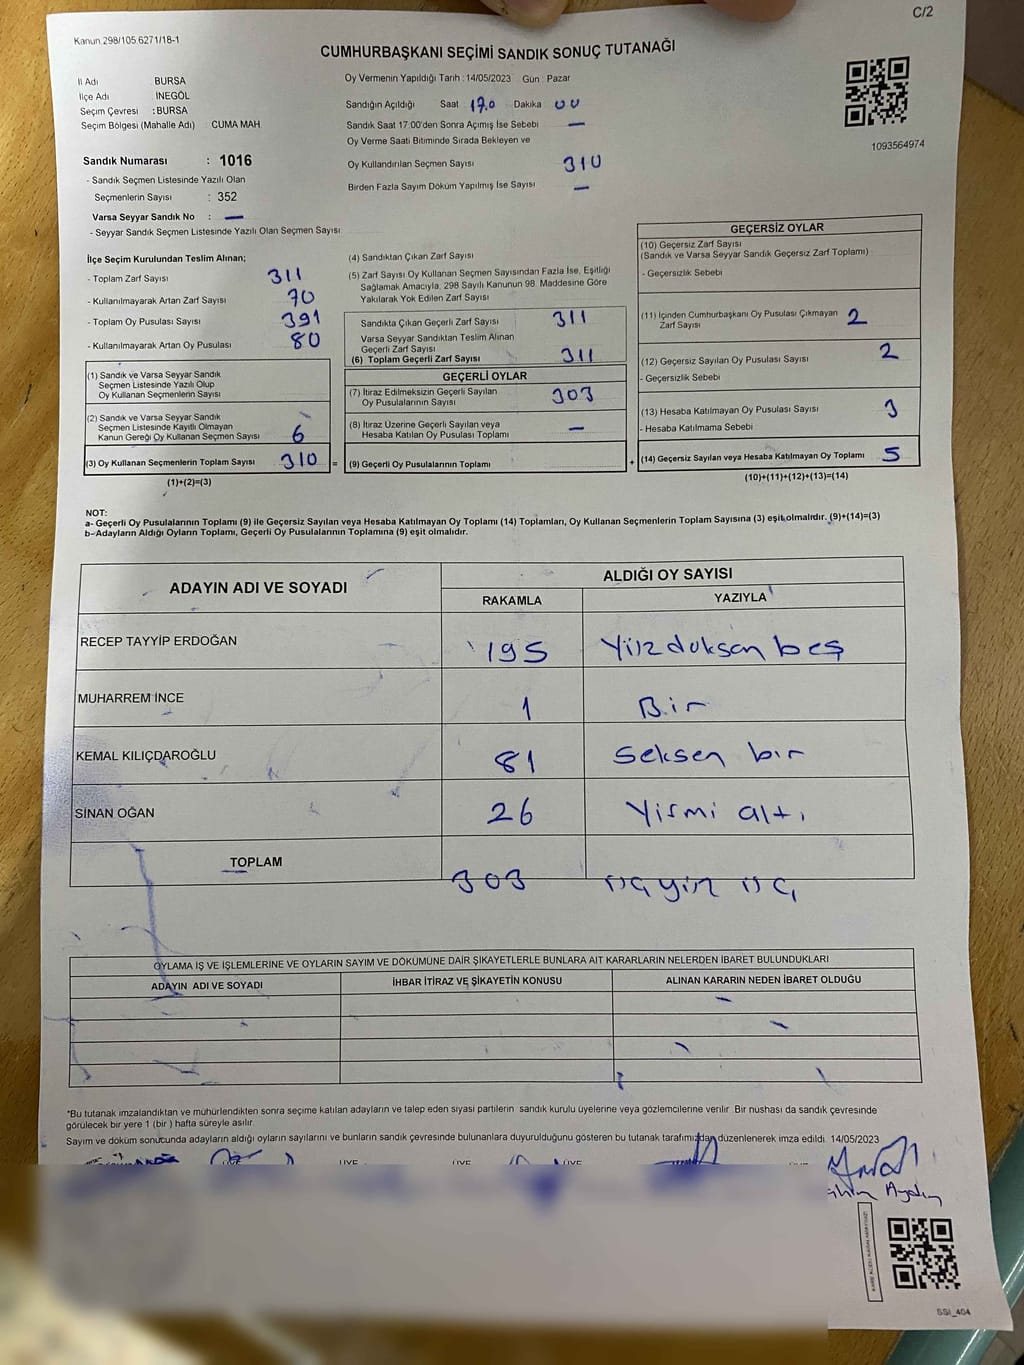 C/2
Kanun 298/105,6271/18-1
CUMHURBAŞKANI SEÇİMİ SANDIK SONUÇ TUTANAĞI
İl Adı BURSA
İlçe Adı İNEGÖL
Seçim Çevresi : BURSA
Seçim Bölgesi (Mahalle Adı) CUMA MAH
Sandık Numarası : 1016
- Sandık Seçmen Listesinde Yazılı Olan
Seçmenlerin Sayısı : 352
Varsa Seyyar Sandık No : —
- Seyyar Sandık Seçmen Listesinde Yazılı Olan Seçmen Sayısı
Oy Vermenin Yapıldığı Tarih : 14/05/2023 Gün : Pazar
Sandığın Açıldığı Saat 17.0 Dakika 00
Sandık Saat 17:00'den Sonra Açımış İse Sebebi —
Oy Verme Saati Bitiminde Sırada Bekleyen ve
Oy Kullandırılan Seçmen Sayısı 310
Birden Fazla Sayım Döküm Yapılmış İse Sayısı —
1093564974
İlçe Seçim Kurulundan Teslim Alınan;
- Toplam Zarf Sayısı 311
- Kullanılmayarak Artan Zarf Sayısı 70
- Toplam Oy Pusulası Sayısı 391
- Kullanılmayarak Artan Oy Pusulası 80
(1) Sandık ve Varsa Seyyar Sandık
Seçmen Listesinde Yazılı Olup
Oy Kullanan Seçmenlerin Sayısı
(2) Sandık ve Varsa Seyyar Sandık
Seçmen Listesinde Kayıtlı Olmayan
Kanun Gereği Oy Kullanan Seçmen Sayısı 6
(3) Oy Kullanan Seçmenlerin Toplam Sayısı 310 =
(1)+(2)=(3)
(4) Sandıktan Çıkan Zarf Sayısı
(5) Zarf Sayısı Oy Kullanan Seçmen Sayısından Fazla İse, Eşitliği
Sağlamak Amacıyla, 298 Sayılı Kanunun 98. Maddesine Göre
Yakılarak Yok Edilen Zarf Sayısı
Sandıkta Çıkan Geçerli Zarf Sayısı 311
Varsa Seyyar Sandıktan Teslim Alınan
Geçerli Zarf Sayısı
(6) Toplam Geçerli Zarf Sayısı 311
GEÇERLİ OYLAR
(7) İtiraz Edilmeksizin Geçerli Sayılan
Oy Pusulalarının Sayısı 303
(8) İtiraz Üzerine Geçerli Sayılan veya
Hesaba Katılan Oy Pusulası Toplamı —
(9) Geçerli Oy Pusulalarının Toplamı +
GEÇERSİZ OYLAR
(10) Geçersiz Zarf Sayısı
(Sandık ve Varsa Seyyar Sandık Geçersiz Zarf Toplamı)
- Geçersizlik Sebebi
(11) İçinden Cumhurbaşkanı Oy Pusulası Çıkmayan
Zarf Sayısı 2
(12) Geçersiz Sayılan Oy Pusulası Sayısı 2
- Geçersizlik Sebebi
(13) Hesaba Katılmayan Oy Pusulası Sayısı 3
- Hesaba Katılmama Sebebi
(14) Geçersiz Sayılan veya Hesaba Katılmayan Oy Toplamı 5
(10)+(11)+(12)+(13)=(14)
NOT:
a- Geçerli Oy Pusulalarının Toplamı (9) ile Geçersiz Sayılan veya Hesaba Katılmayan Oy Toplamı (14) Toplamları, Oy Kullanan Seçmenlerin Toplam Sayısına (3) eşit olmalıdır. (9)+(14)=(3)
b-Adayların Aldığı Oyların Toplamı, Geçerli Oy Pusulalarının Toplamına (9) eşit olmalıdır.
ADAYIN ADI VE SOYADI ALDIĞI OY SAYISI
RAKAMLA YAZIYLA
RECEP TAYYİP ERDOĞAN 195 Yüzdoksan beş
MUHARREM İNCE 1 Bir
KEMAL KILIÇDAROĞLU 81 Seksen bir
SİNAN OĞAN 26 Yirmi altı
TOPLAM 303 üçyüz üç
OYLAMA İŞ VE İŞLEMLERİNE VE OYLARIN SAYIM VE DÖKÜMÜNE DAİR ŞİKAYETLERLE BUNLARA AİT KARARLARIN NELERDEN İBARET BULUNDUKLARI
ADAYIN ADI VE SOYADI İHBAR İTİRAZ VE ŞİKAYETİN KONUSU ALINAN KARARIN NEDEN İBARET OLDUĞU
*Bu tutanak imzalandıktan ve mühürlendikten sonra seçime katılan adayların ve talep eden siyasi partilerin sandık kurulu üyelerine veya gözlemcilerine verilir. Bir nushası da sandık çevresinde
görülecek bir yere 1 (bir) hafta süreyle asılır.
Sayım ve döküm sonucunda adayların aldığı oyların sayılarını ve bunların sandık çevresinde bulunanlara duyurulduğunu gösteren bu tutanak tarafımızdan düzenlenerek imza edildi. 14/05/2023
ÜYE ÜYE ÜYE
Aydın
SSI_404